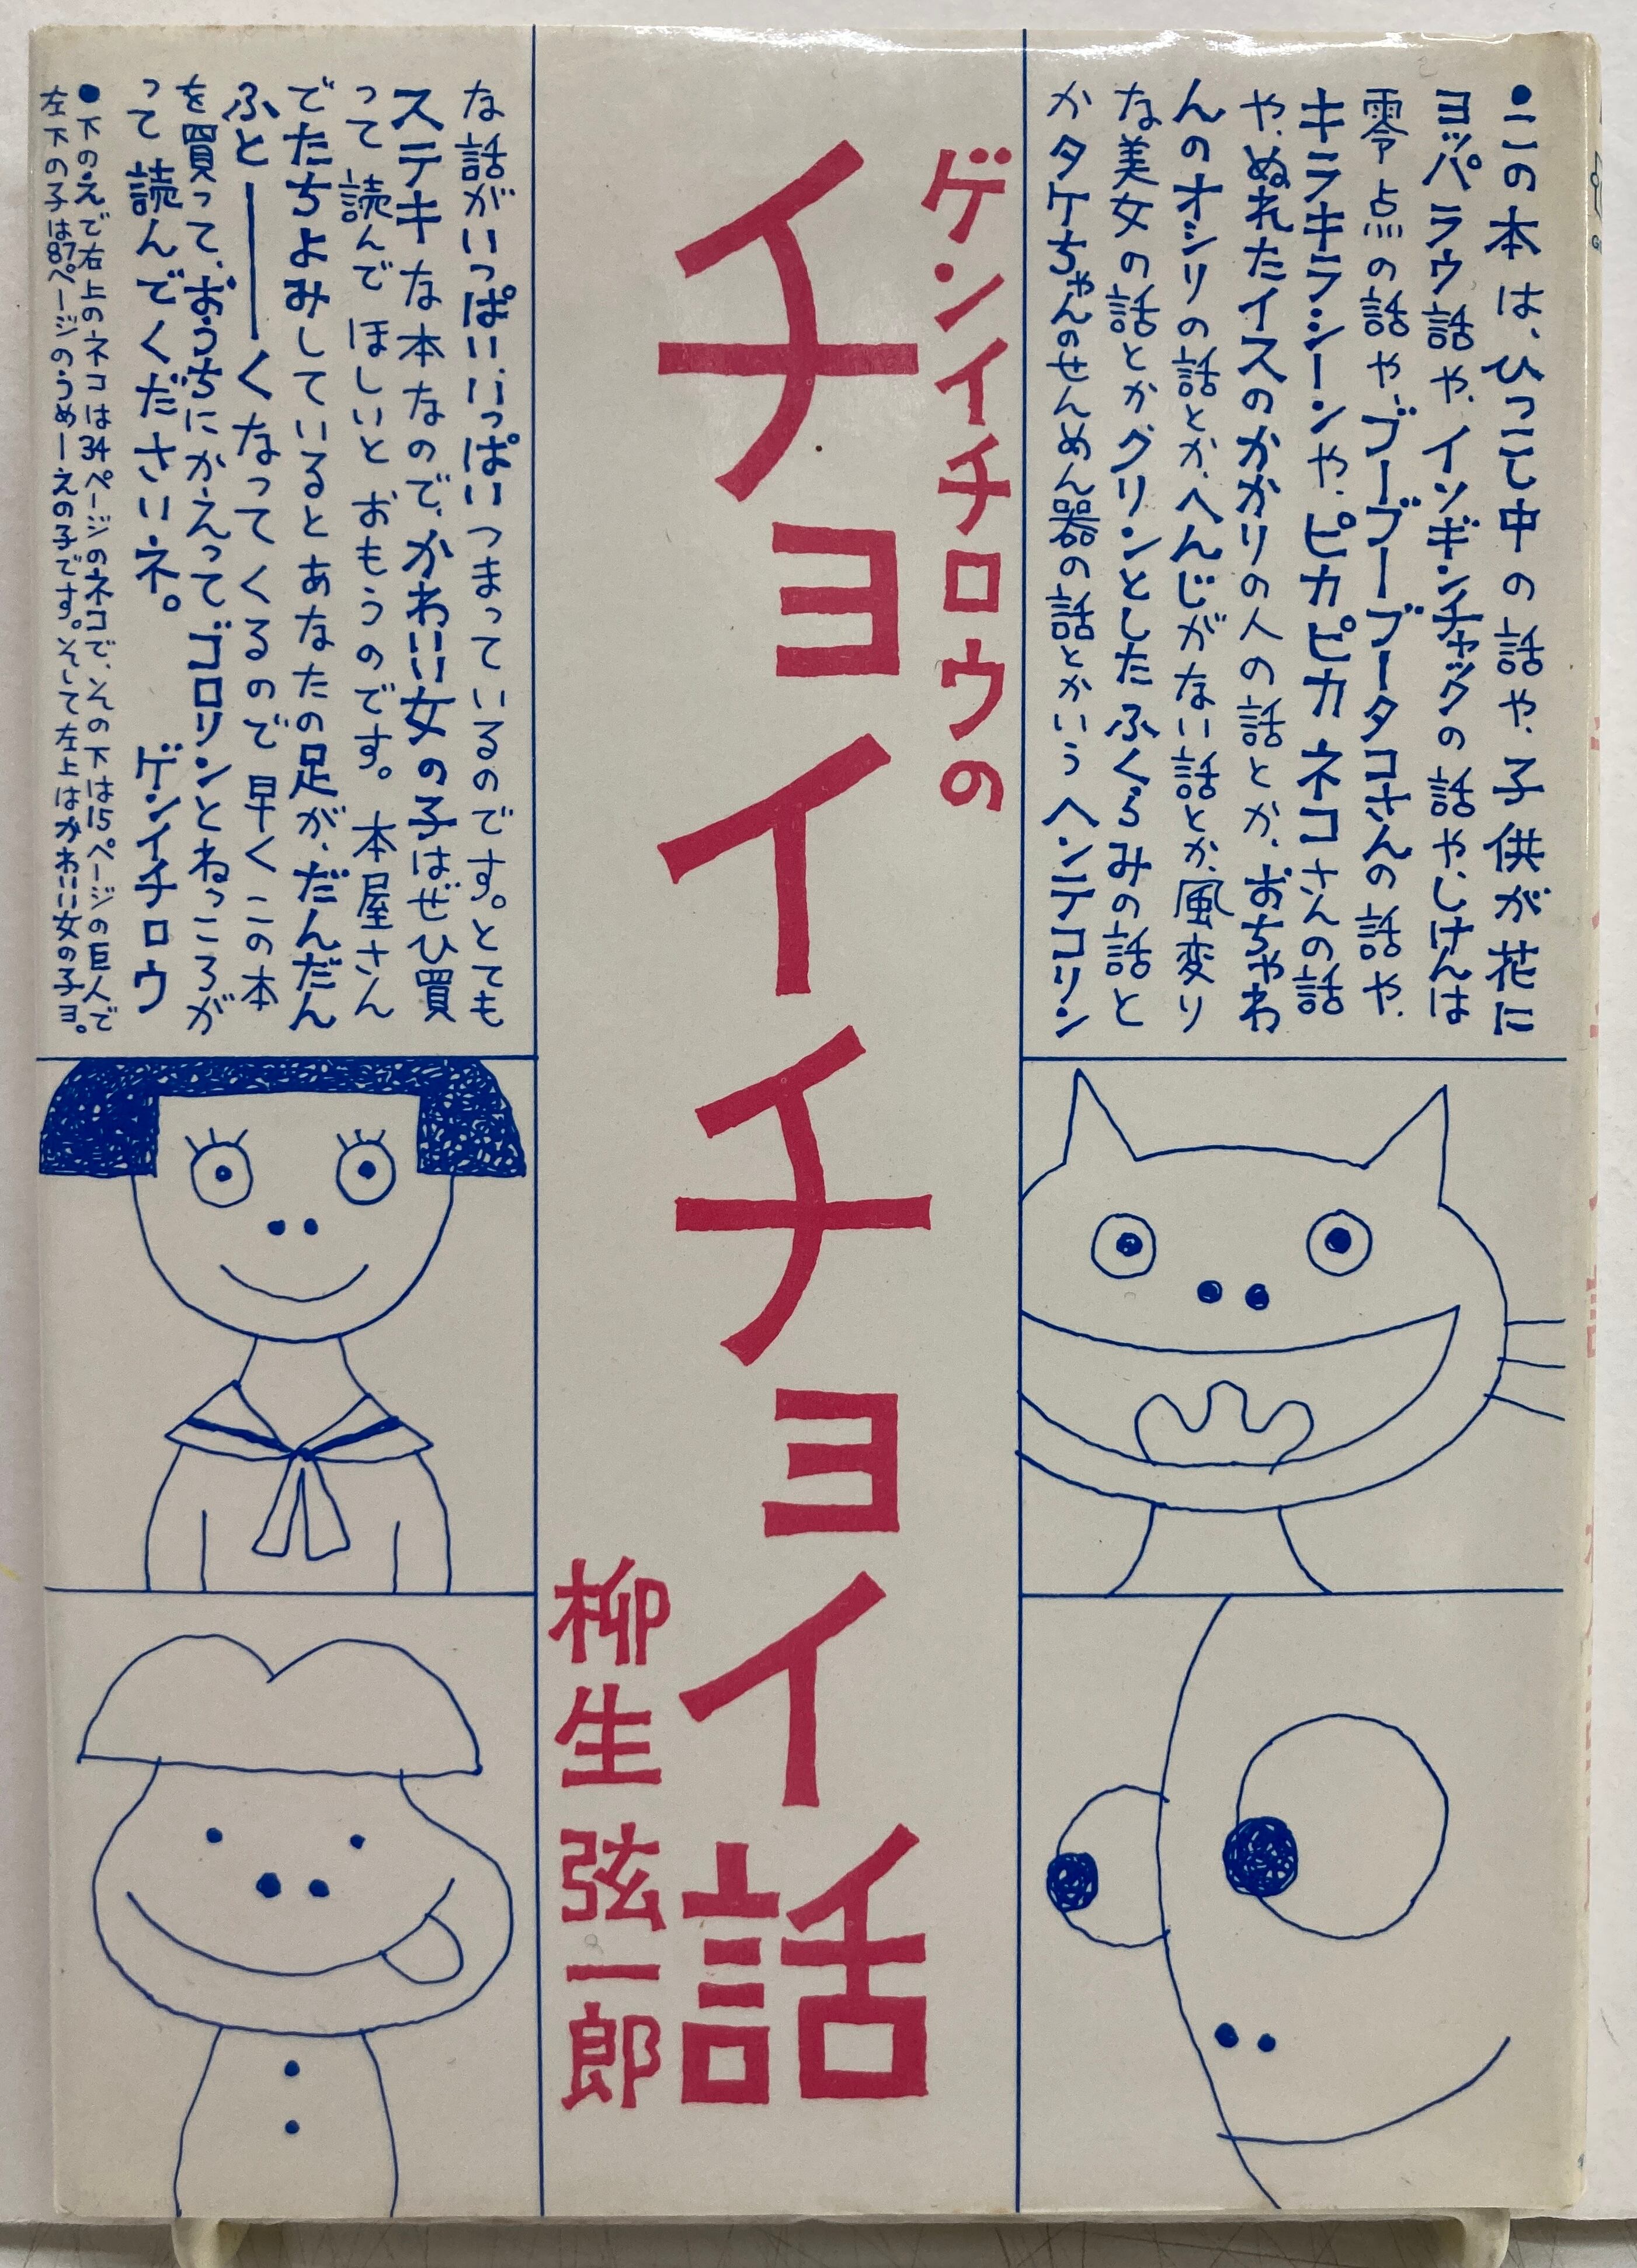 ●この本は、ひっこし中の話や、子供が花に
ヨッパラウ話や、インギンチャックの話や、しけんは
零点の話や、ブーブーブータコさんの話や、
キラキラシーンや、ピカピカネコさんの話
や、ぬれたイスのかかりの人の話とか、おちゃわ
んのオシリの話とか、へんじがない話とか、風変り
な美女の話とかグリンとしたふくらみの話と
かタケちゃんのせんめん器の話とかいうヘンテコリン
ゲンイチロウの
チョイチョイ話
柳生弦一郎
な話がいっぱい、いっぱいつまっているのです。とても
ステキな本なので、かわいい女の子はぜひ買
って読んでほしいとおもうのです。本屋さん
でたちよみしているとあなたの足が、だんだん
ふと――くなってくるので早くこの本
を買って、おうちにかえってゴロリンとねっころが
って読んでくださいネ。 ゲンイチロウ
●下のえで右上のネコは34ページのネコで、その下は15ページの巨人で
左下の子は87ページのうめーえの子です。そして左上はかわいい女の子ヨ。